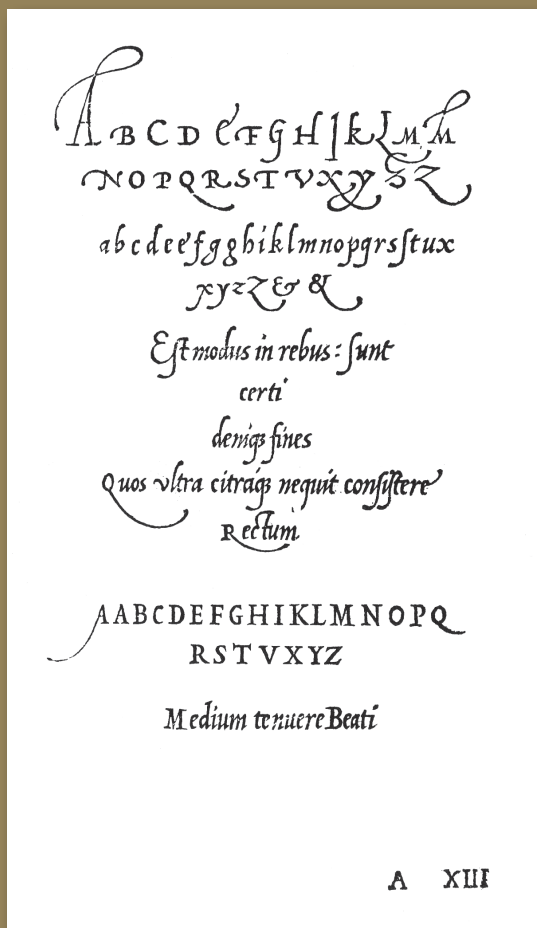 A B C D E F G H I K L M M
N O P Q R S T V X Y Z Z
a b c d e e f g g h i k l m n o p q r s ſ t u x
x y z Z & &
Eſt modus in rebus: ſunt
certi
deniqꝫ fines
Quos vltra citraqꝫ nequit conſiſtere
Rectum
AABCDEFGHIKLMNOPQ
RSTVXYZ
Medium tenuere Beati
A XIII